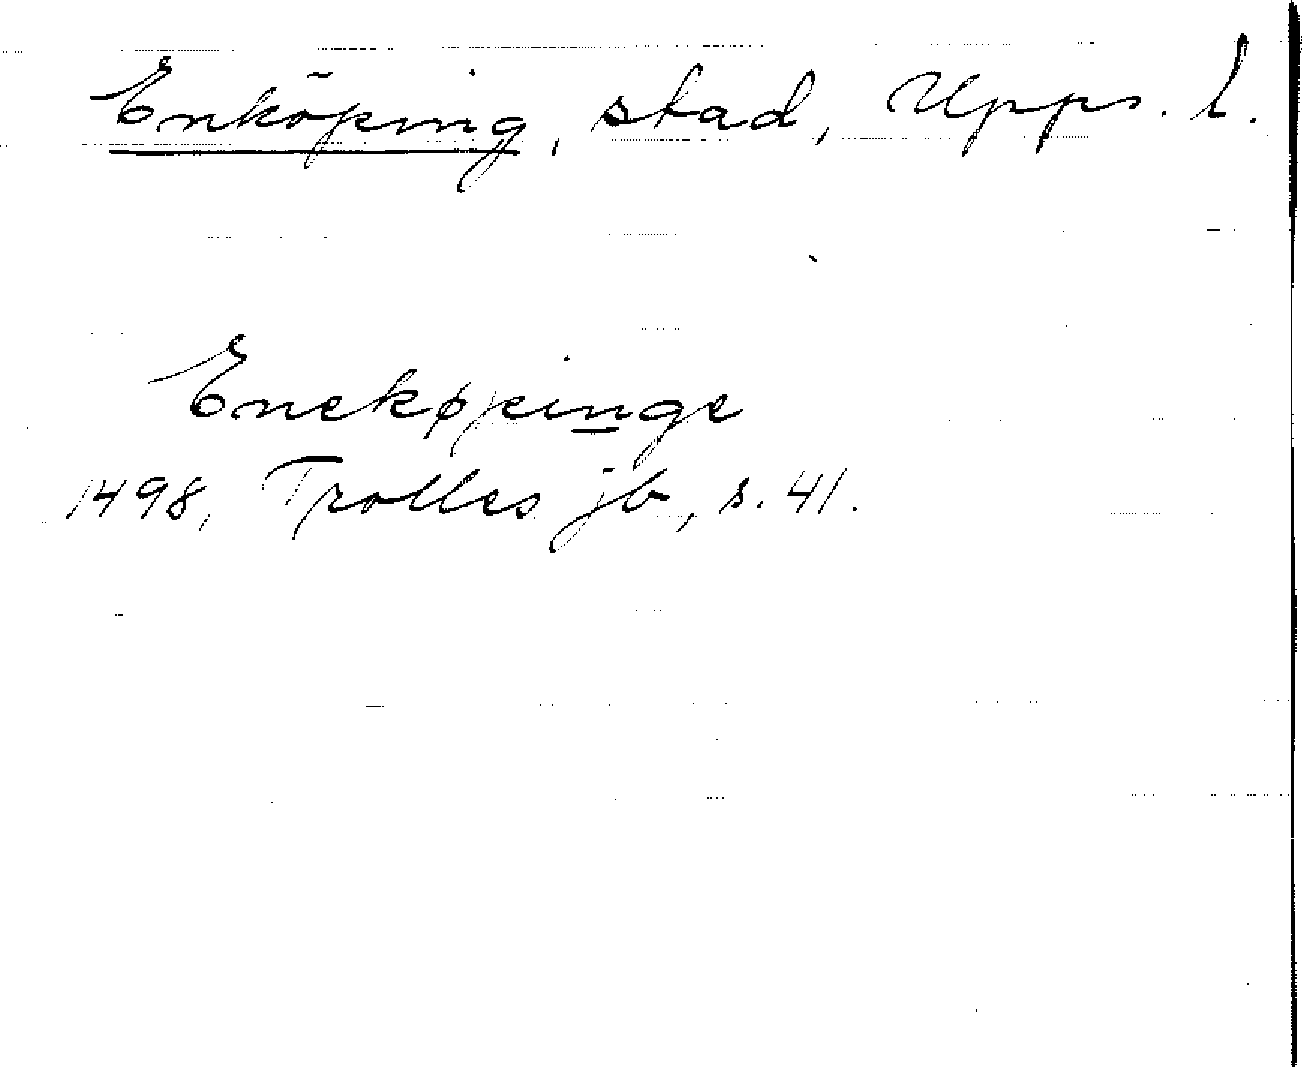 Enköping, stad, Upps. l.
Enekøpinge
1498, Trolles jb, s. 41.